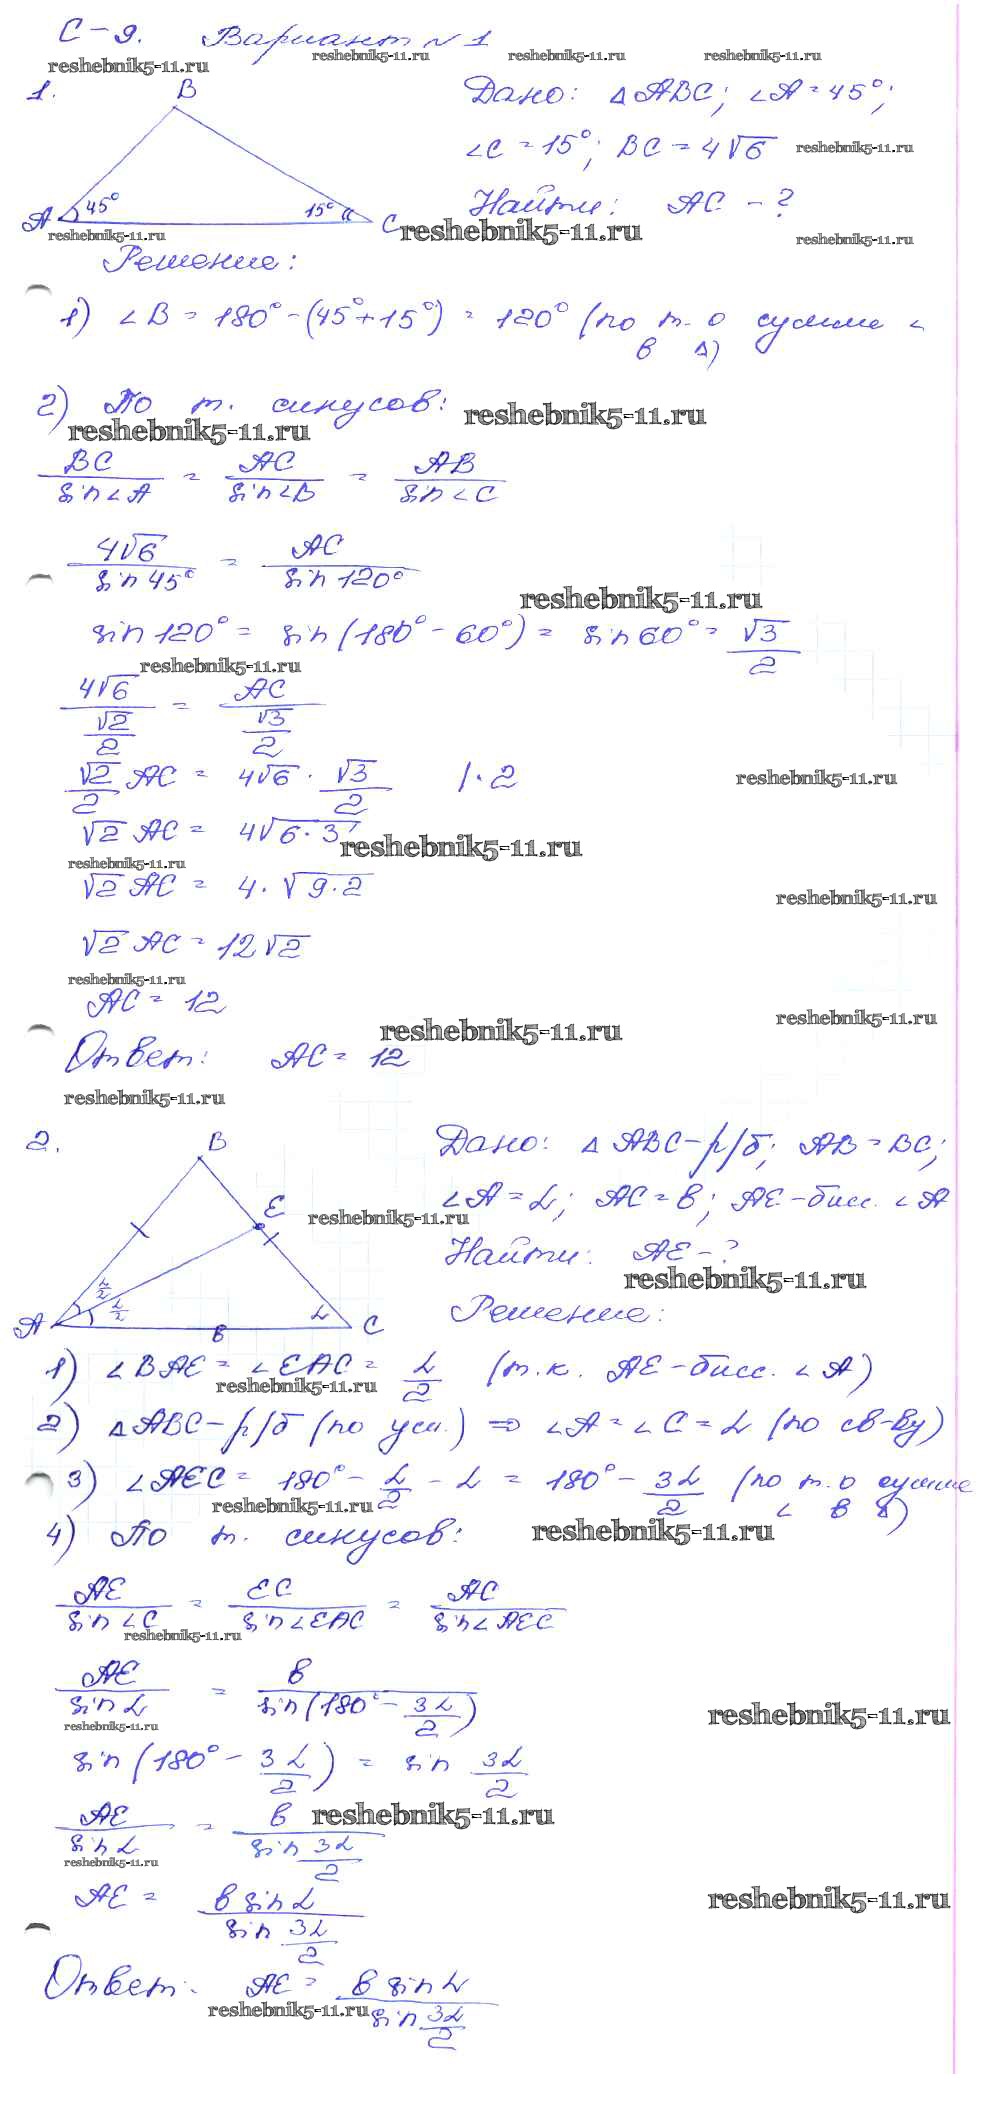 С-9. Вариант №1
reshebnik5-11.ru reshebnik5-11.ru reshebnik5-11.ru reshebnik5-11.ru
1. B
Дано: △ABC; ∠A=45°;
∠C=15°; BC=4√6 reshebnik5-11.ru
45° 15°
A C
Найти: AC-?
reshebnik5-11.ru reshebnik5-11.ru reshebnik5-11.ru
Решение:
1) ∠B = 180° - (45°+15°) = 120° (по т. о сумме ∠
в △)
2) По т. синусов: reshebnik5-11.ru
reshebnik5-11.ru
BC/sin∠A = AC/sin∠B = AB/sin∠C
4√6/sin45° = AC/sin120°
reshebnik5-11.ru
sin120° = sin(180°-60°) = sin60° = √3/2
reshebnik5-11.ru
4√6/(√2/2) = AC/(√3/2)
√2/2 AC = 4√6 · √3/2 |·2 reshebnik5-11.ru
√2 AC = 4√6·3 reshebnik5-11.ru
reshebnik5-11.ru
√2 AC = 4·√9·2 reshebnik5-11.ru
√2 AC = 12√2
reshebnik5-11.ru
AC = 12
reshebnik5-11.ru reshebnik5-11.ru
Ответ: AC = 12
reshebnik5-11.ru
2. B
Дано: △ABC-р/б; AB=BC;
E
∠A=α; AC=в; AE-бисс. ∠A
reshebnik5-11.ru
Найти: AE-?
reshebnik5-11.ru
α/2 α/2 α
A в C
Решение:
1) ∠BAE = ∠EAC = α/2 (т.к. AE-бисс. ∠A)
reshebnik5-11.ru
2) △ABC-р/б (по усл.) ⇒ ∠A=∠C=α (по св-ву)
3) ∠AEC = 180° - α/2 - α = 180° - 3α/2 (по т. о сумме
∠ в △)
reshebnik5-11.ru
4) По т. синусов: reshebnik5-11.ru
AE/sin∠C = EC/sin∠EAC = AC/sin∠AEC
reshebnik5-11.ru
AE/sinα = в/sin(180°-3α/2)
reshebnik5-11.ru reshebnik5-11.ru
sin(180° - 3α/2) = sin 3α/2
AE/sinα = в/sin 3α/2 reshebnik5-11.ru
reshebnik5-11.ru
AE = в sinα/sin 3α/2 reshebnik5-11.ru
Ответ: AE = в sinα/sin 3α/2
reshebnik5-11.ru